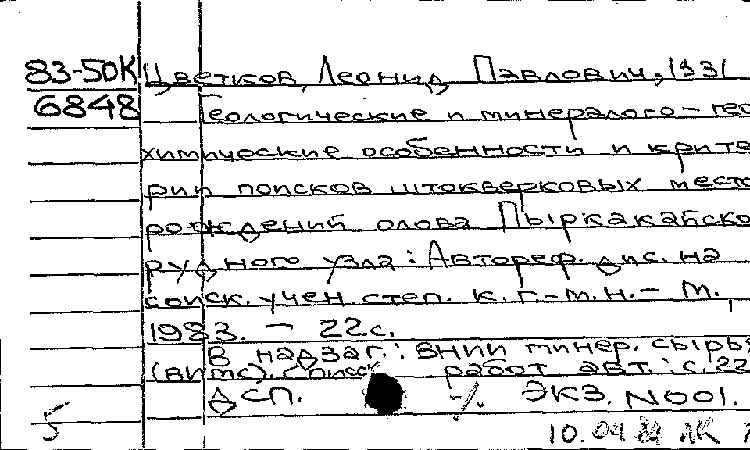 83-50К Цветков, Леонид Павлович, 1931
6848 Геологические и минералого-гео
химические особенности и крите
рии поисков штокверковых место
рождений олова Пыркакайско
рудного узла: Автореф. дис. на
соиск. учен. степ. к. г.-м.н. - М.,
1983. - 22с.
В надзаг.: ВНИИ минер. сырья
(ВИМС). Список работ авт.: с. 22
ДСП. Экз. N001.
5 10.04.84 ЛК